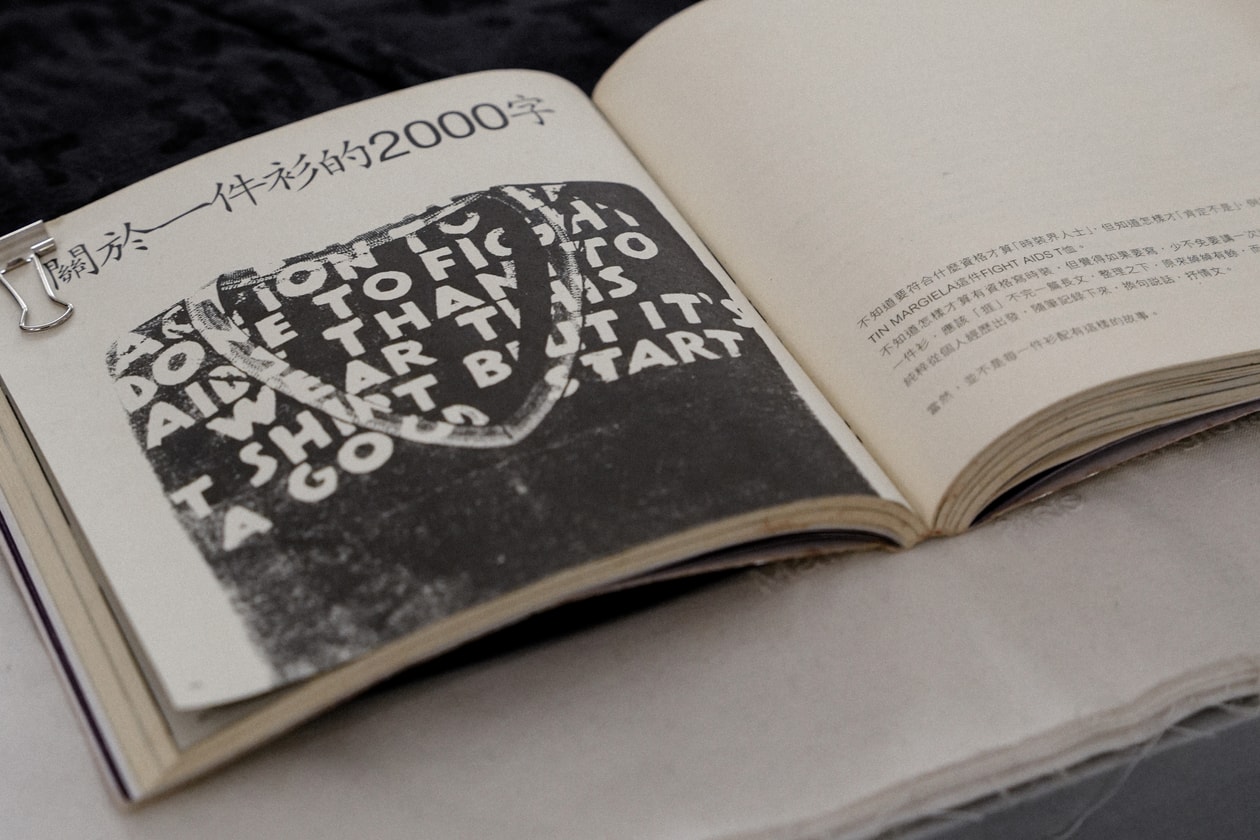 關於一件衫的2000字
ION TO
DONE TO FIGHT
AIDS THAN TO
WEAR THIS
T SHIRT BUT IT'S
A GOOD START
不知道要符合什麼資格才算「時裝界人士」,但知道怎樣才「肯定不是」
TIN MARGIELA這件FIGHT AIDS T恤。
不知道怎樣才算有資格寫時裝,但覺得如果要寫,少不免要講一次
一件衫,應該「噏」不完一篇長文,整理之下,原來綽綽有餘,
純粹從個人經歷出發,隨筆記錄下來,換句說話,抒情文。
當然,並不是每一件衫配有這樣的故事。